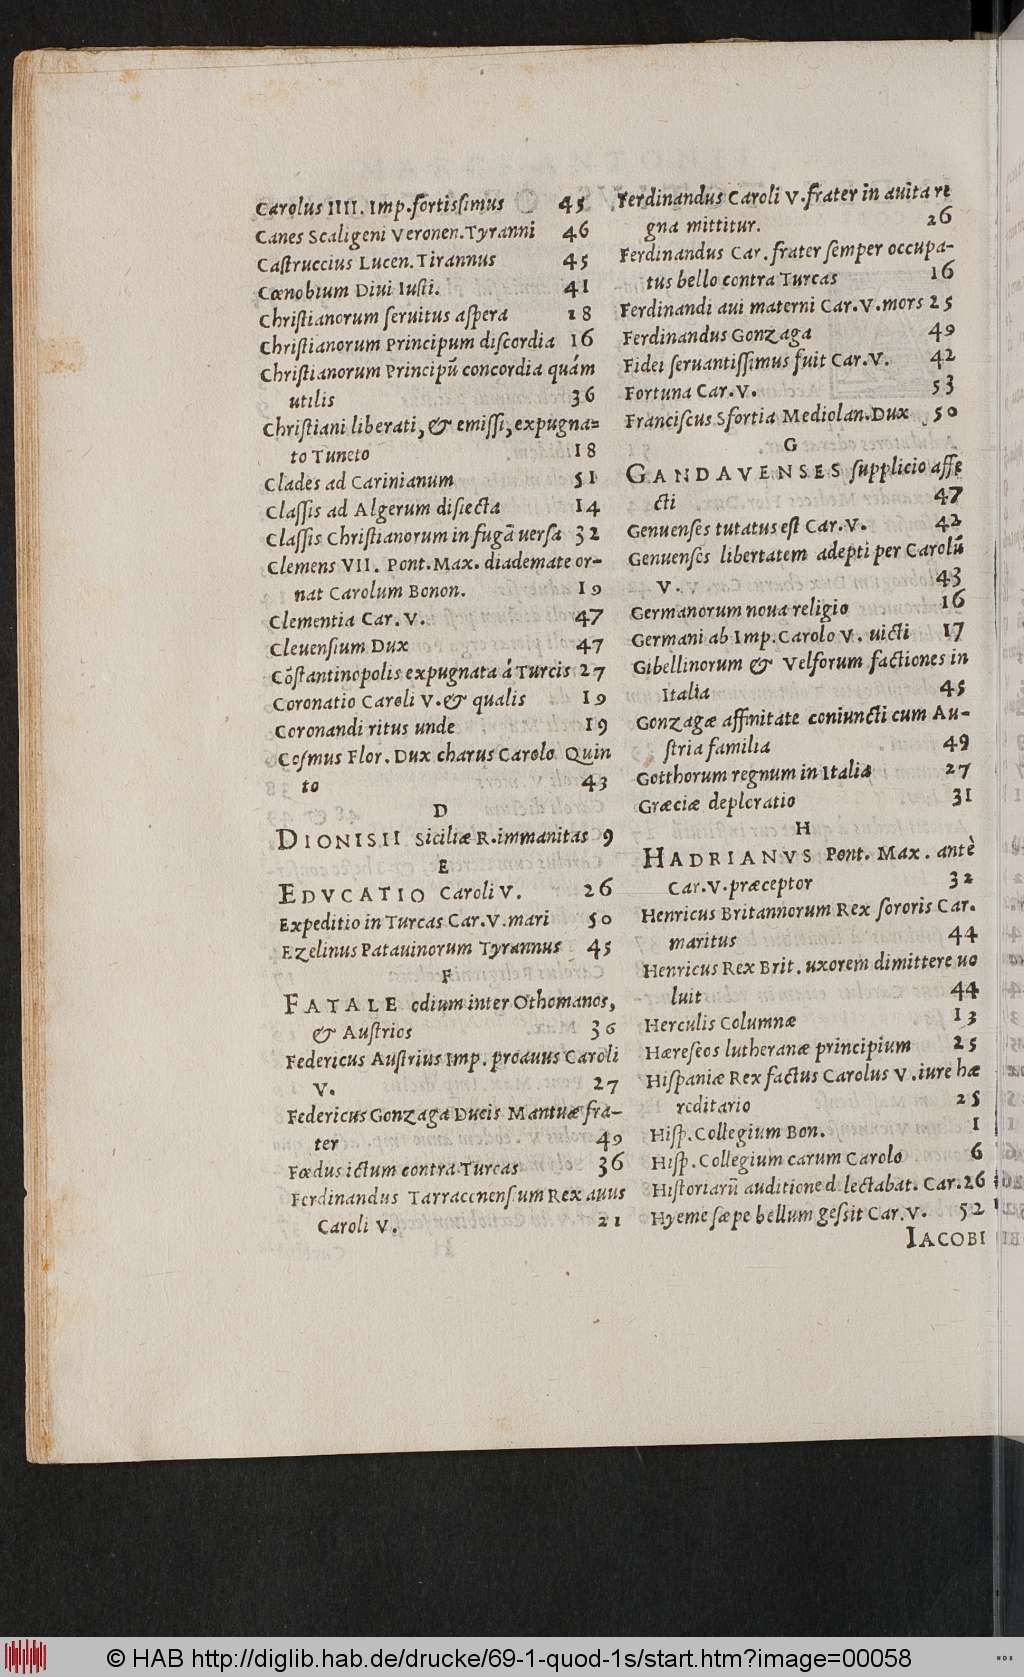 Carolus IIII. Imp. fortissimus 45
Canes Scaligeni Veronen. Tyranni 46
Castruccius Lucen. Tirannus 45
Cœnobium Diui Iusti. 41
Christianorum seruitus aspera 18
Christianorum Principum discordia 16
Christianorum Principū concordia quám
utilis 36
Christiani liberati, & emissi, expugna=
to Tuneto 18
Clades ad Carinianum 51
Classis ad Algerum disiecta 14
Classis Christianorum in fugā uersa 32
Clemens VII. Pont. Max. diademate or-
nat Carolum Bonon. 19
Clementia Car. V. 47
Cleuensium Dux 47
Cōstantinopolis expugnata á Turcis 27
Coronatio Caroli V. & qualis 19
Coronandi ritus unde 19
Cosmus Flor. Dux charus Carolo Quin
to 43
D
DIONISII Siciliæ R. immanitas 9
E
EDVCATIO Caroli V. 26
Expeditio in Turcas Car. V. mari 50
Ezelinus Patauinorum Tyrannus 45
F
FATALE odium inter Othomanos,
& Austrios 36
Federicus Austrius Imp. proauus Caroli
V. 27
Federicus Gonzaga Ducis Mantuæ fra-
ter 49
Fœdus ictum contra Turcas 36
Ferdinandus Tarraconensium Rex auus
Caroli V. 21
Ferdinandus Caroli V. frater in auita re
gna mittitur. 26
Ferdinandus Car. frater semper occupa-
tus bello contra Turcas 16
Ferdinandi aui materni Car. V. mors 25
Ferdinandus Gonzaga 49
Fidei seruantissimus fuit Car. V. 42
Fortuna Car. V. 53
Franciscus Sfortia Mediolan. Dux 50
G
GANDAVENSES supplicio affe
cti 47
Genuenses tutatus est Car. V. 42
Genuenses libertatem adepti per Carolū
V. 43
Germanorum noua religio 16
Germani ab Imp. Carolo V. uicti 17
Gibellinorum & Velforum factiones in
Italia 45
Gonzagæ affinitate coniuncti cum Au-
stria familia 49
Gotthorum regnum in Italia 27
Græciæ deploratio 31
H
HADRIANVS Pont. Max. antè
Car. V. præceptor 32
Henricus Britannorum Rex sororis Car.
maritus 44
Henricus Rex Brit. uxorem dimittere uo
luit 44
Herculis Columnæ 13
Hæreseos lutheranæ principium 25
Hispaniæ Rex factus Carolus V. iure hæ
reditario 25
Hisp. Collegium Bon. 1
Hisp. Collegium carum Carolo 6
Historiarū auditione delectabat. Car. 26
Hyeme sæpe bellum gessit Car. V. 52
IACOBI
© HAB http://diglib.hab.de/drucke/69-1-quod-1s/start.htm?image=00058